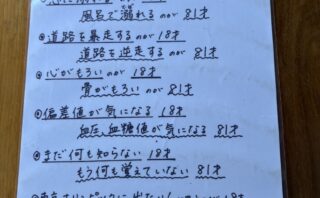 風呂で溺れるのが 81才
道路を暴走するのが 18才
道路を逆走するのが 81才
心がもろいのが 18才
骨がもろいのが 81才
偏差値が気になる 18才
血圧、血糖値が気になる 81才
まだ何も知らない 18才
もう何も覚えていない 81才